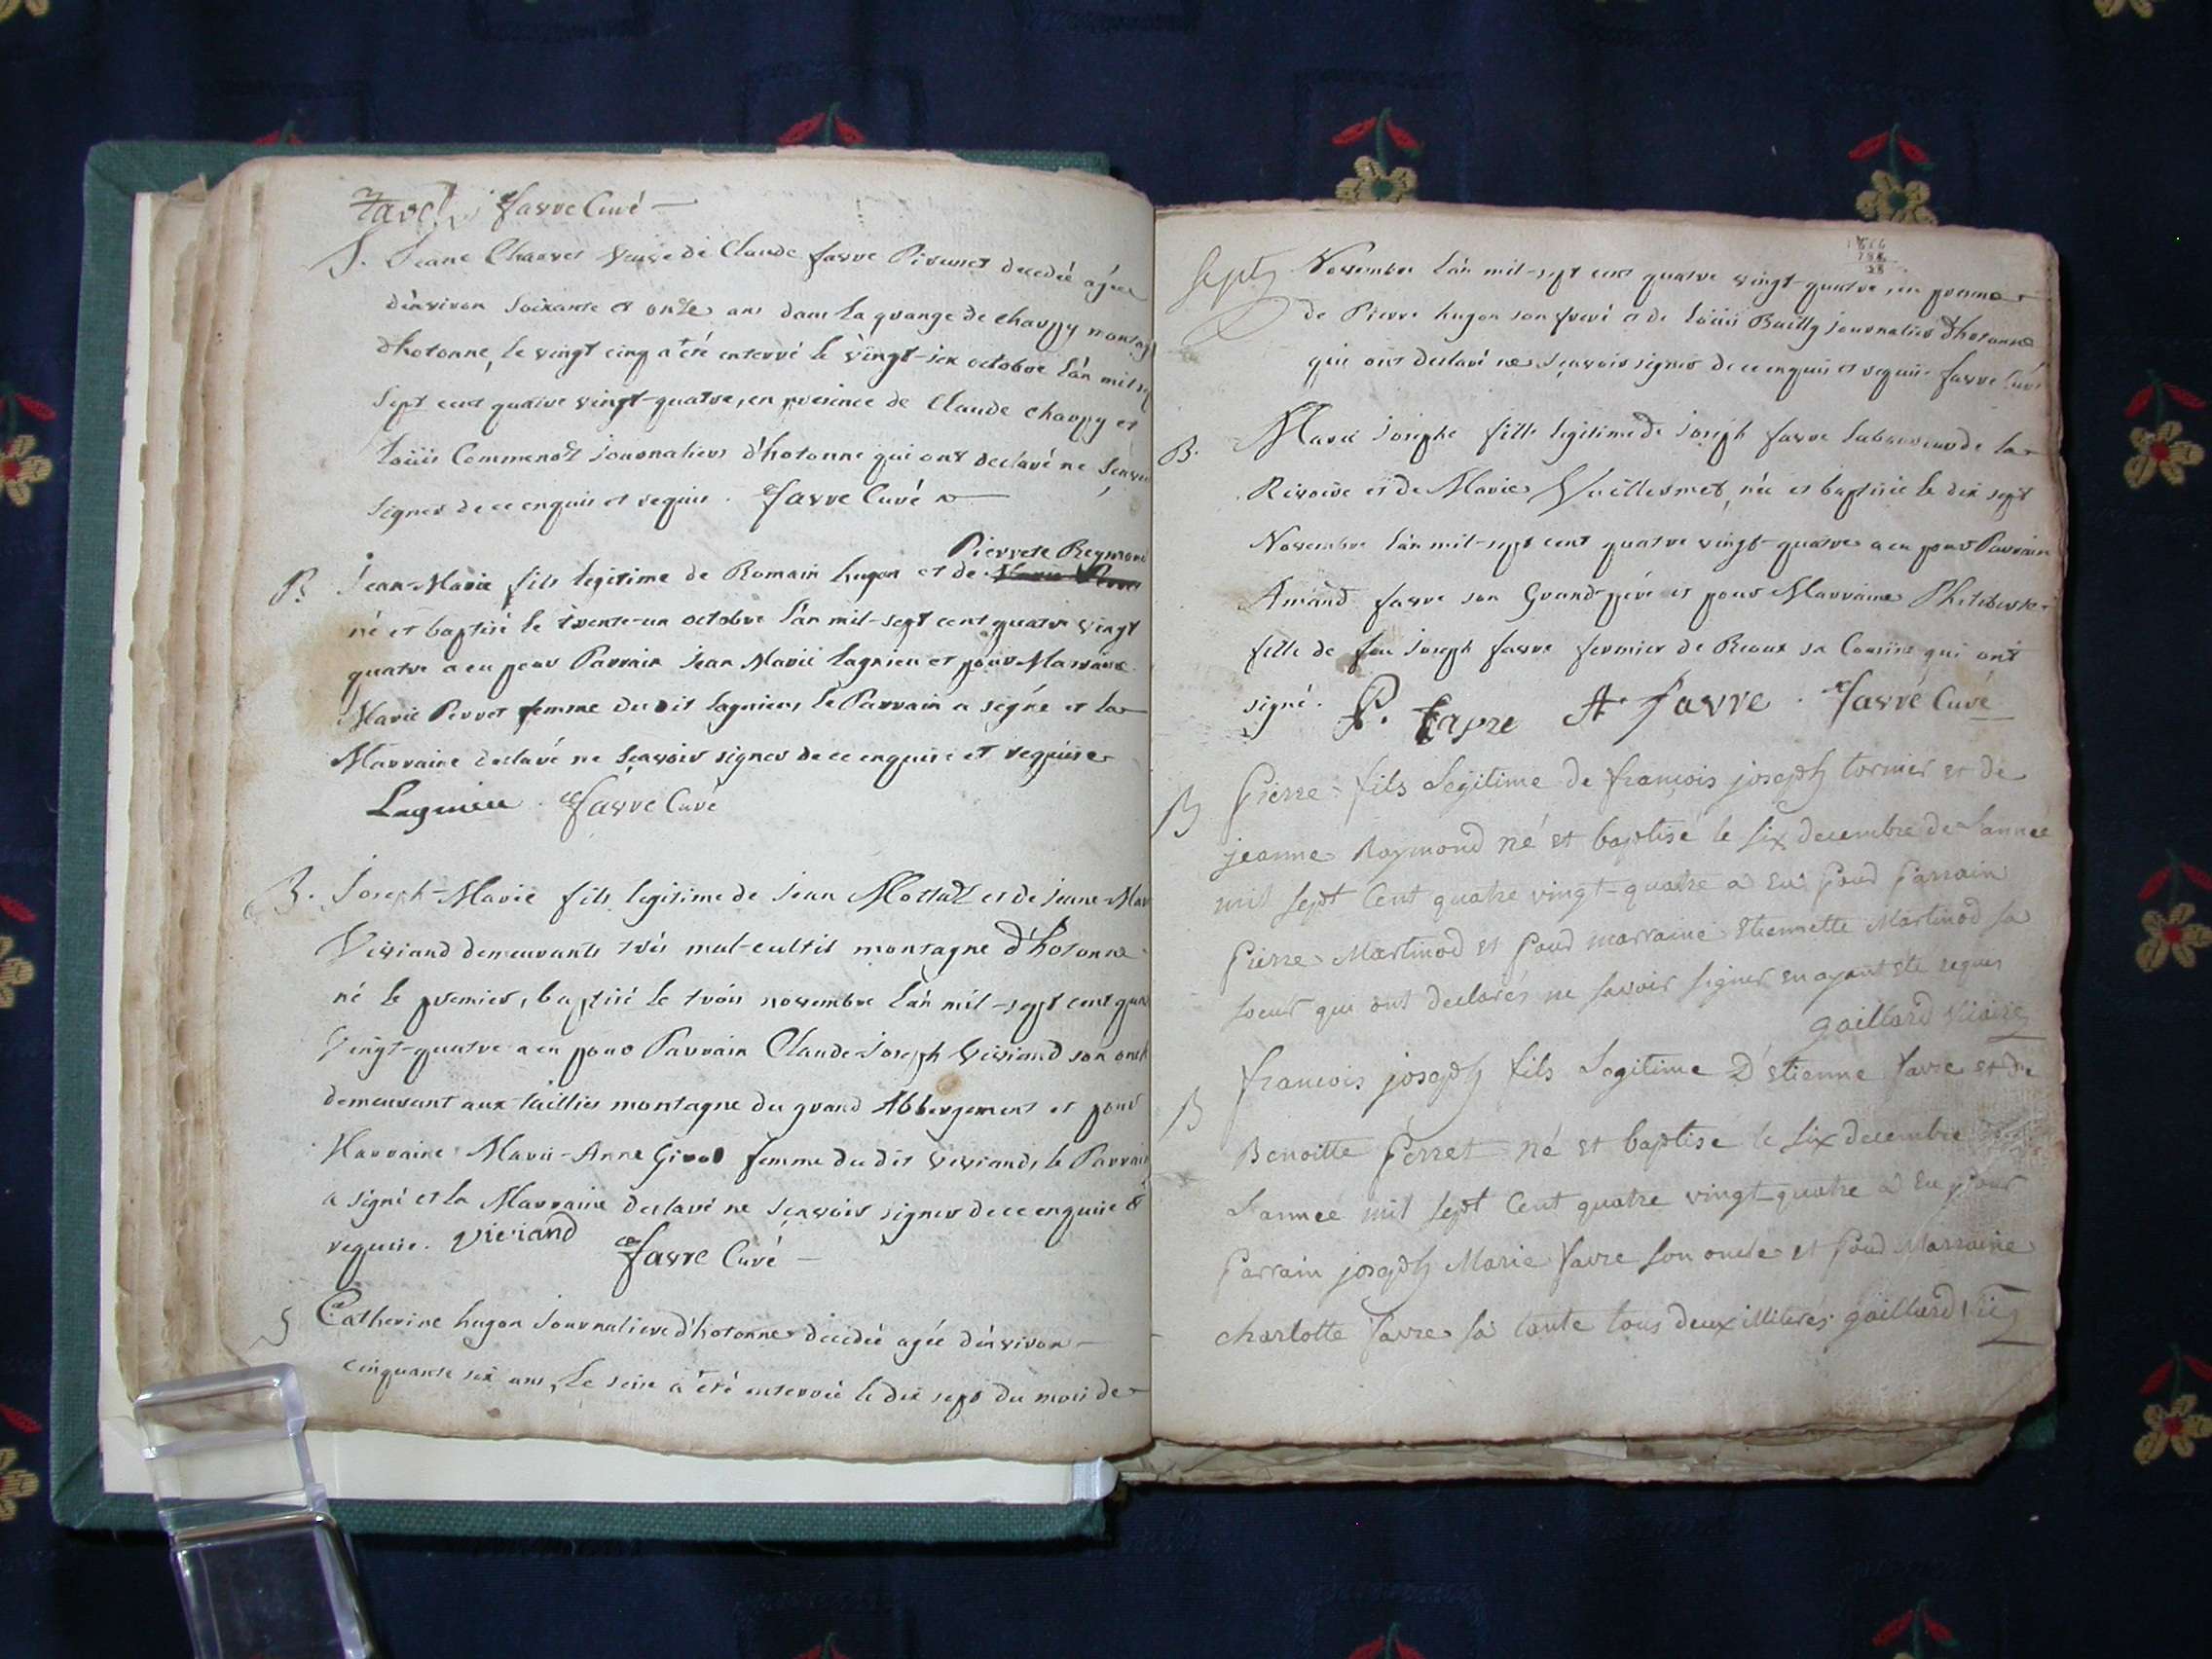 favre Curé
S. Jeane Charvet veuve de Claude favre decedée agée
d'environ soixante et onze ans dans la grange de charpy montag
d'hotonne, le vingt cinq a été enterré le vingt-six octobre l'an mil
sept cent quatre vingt-quatre, en presence de Claude charpy et
Loüis journaliers d'hotonne qui ont declaré ne sçavoi
signer de ce enquis et requis. favre Curé
Pierrete Reymond
B. Jean-Marie fils legitime de Romain hugon et de
né et baptisé le trente-un octobre l'an mil-sept cent quatre vingt
quatre a eu pour Parrain jean Marie Lagnieu et pour Marraine
Marie Perret femme du dit Lagnieu, le Parrain a signé et la
Marraine declaré ne sçavoir signer de ce enquise et requise
Lagnieu. favre Curé
B. Joseph-Marie fils legitime de jean Mottaz et de jeane-Mar
Viviand demeurants très mul-cultil montagne d'hotonne
né le premier, baptisé le trois novembre l'an mil-sept cent qua
Vingt-quatre a eu pour Parrain Claude-Joseph Viviand son oncle
demeurant aux taillies montagne du grand Abbergement et pour
Marraine Marie-Anne Girod femme du dit Viviand, le Parrain
a signé et la Marraine declaré ne sçavoir signer de ce enquise &
requise. viviand favre Curé
S Catherine hugon journaliere d'hotonne decedée agée d'environ
cinquante six ans, le seise a été enterrée le dix sept du mois de
Novembre l'an mil-sept cent quatre vingt-quatre, en presence
de Pierre hugon son frere et de Loüis Bailly journalier d'hotonne
qui ont declaré ne sçavoir signer de ce enquis et requis favre Curé
B. Marie josephe fille legitime de joseph favre laboureur de la
Rivoire et de Marie Vuillermet, née et baptisée le dix sept
Novembre l'an mil-sept cent quatre vingt-quatre a eu pour Parrain
Amand favre son Grand-pére et pour Marraine Philiberte
fille de feu joseph favre fermier de Reoux sa Cousine qui ont
signé. P. favre A favre. favre Curé
B pierre fils legitime de françois joseph tornier et de
jeanne Raymond né et baptisé le six decembre de l'année
mil sept Cent quatre vingt-quatre a eu pour parrain
pierre Martinod et pour marraine Etiennette Martinod sa
soeur qui ont declarés ne savoir signer en ayant été requis
gaillard vicaire
B françois joseph fils legitime D'étienne favre et de
Benoitte perret né et baptisé le six decembre
l'année mil sept Cent quatre vingt-quatre a eu pour
parrain joseph Marie favre son oncle et pour Marraine
charlotte favre sa tante tous deux illiterés. gaillard vic